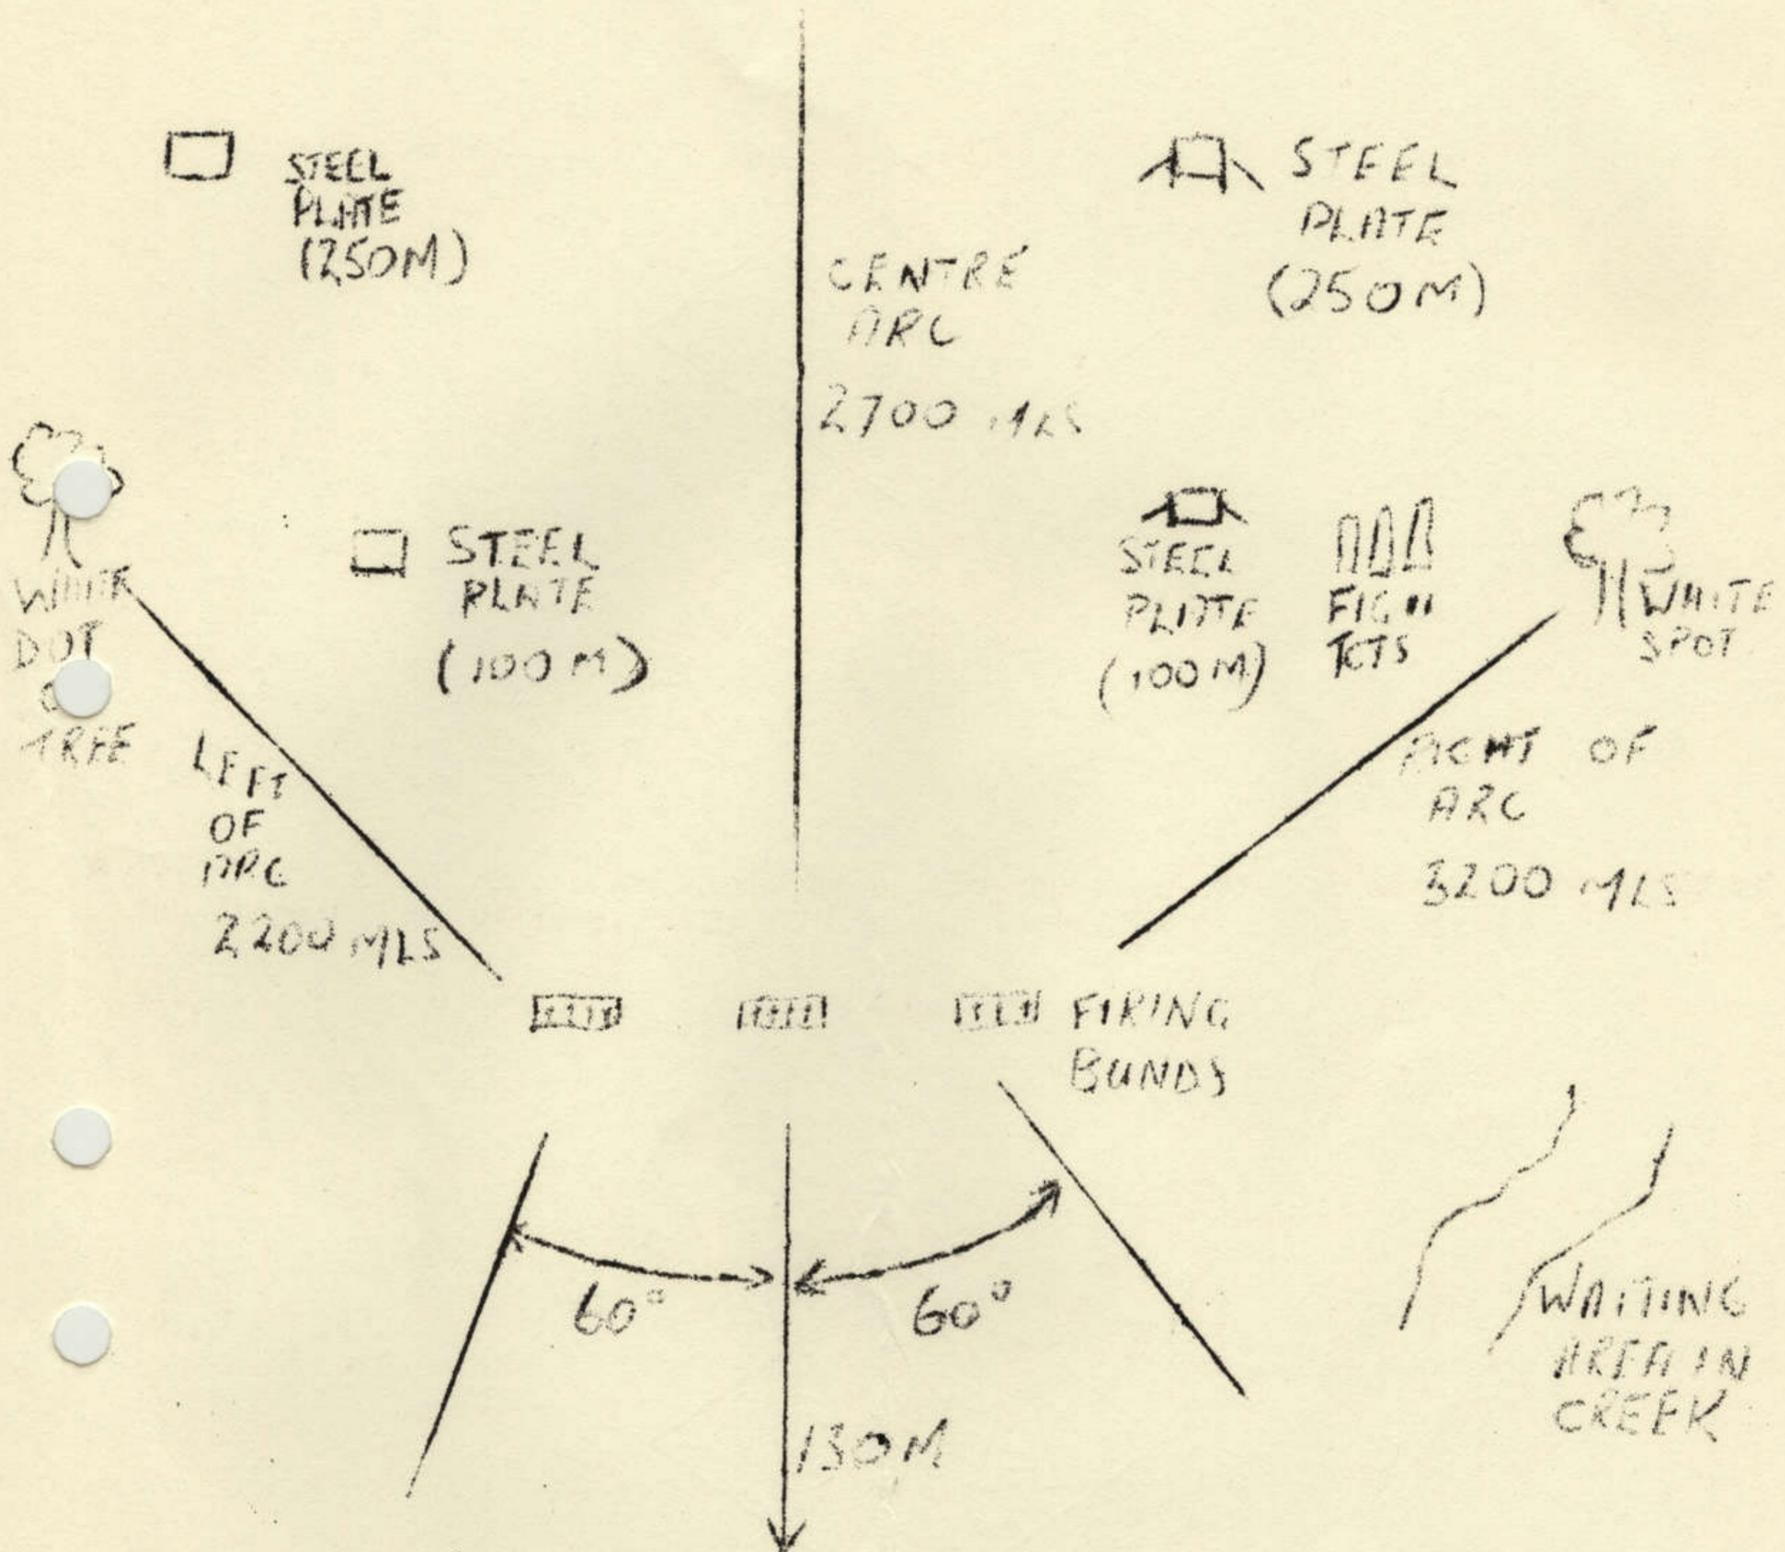 STEEL
PLATE
(250M)
STEEL
PLATE
(250M)
CENTRE
ARC
2700 MLS
WHITE
DOT
TREE
STEEL
PLATE
(100M)
STEEL
PLATE
(100M)
FIG 11
TGTS
WHITE
SPOT
LEFT
OF
ARC
2200 MLS
RIGHT OF
ARC
3200 MLS
FIRING
BUNDS
60°
60°
130M
WAITING
AREA IN
CREEK